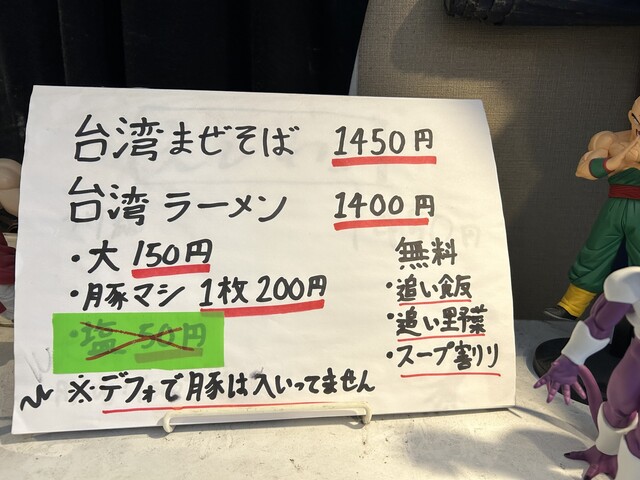 台湾まぜそば 1450円
台湾ラーメン 1400円
・大 150円
・豚マシ 1枚 200円
・塩 50円
※デフォで豚は入いってません
無料
・追い飯
・追い野菜
・スープ割りリ